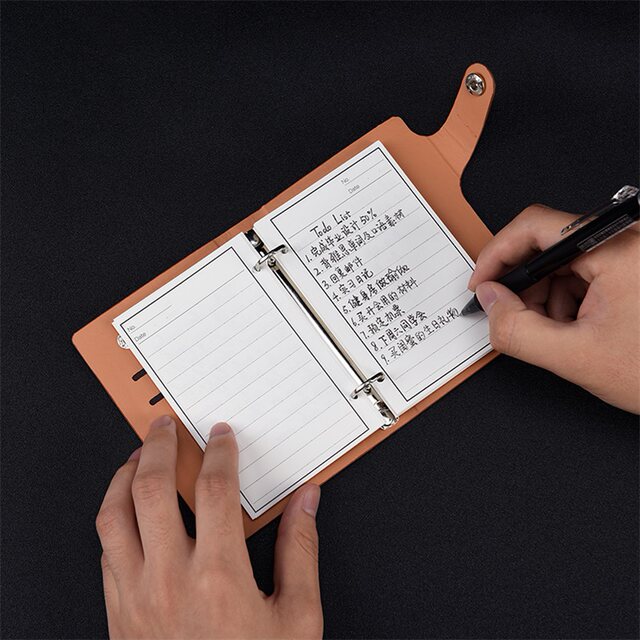 No.
Date
No.
Date
Todo List
1. 完成毕业设计50%
2. 背雅思单词及口语素材
3. 回复邮件
4. 实习日记
5. 健身房做瑜伽
6. 买开会用的材料
7. 预定机票
8. 下周三同学会
9. 买闺蜜的生日礼物